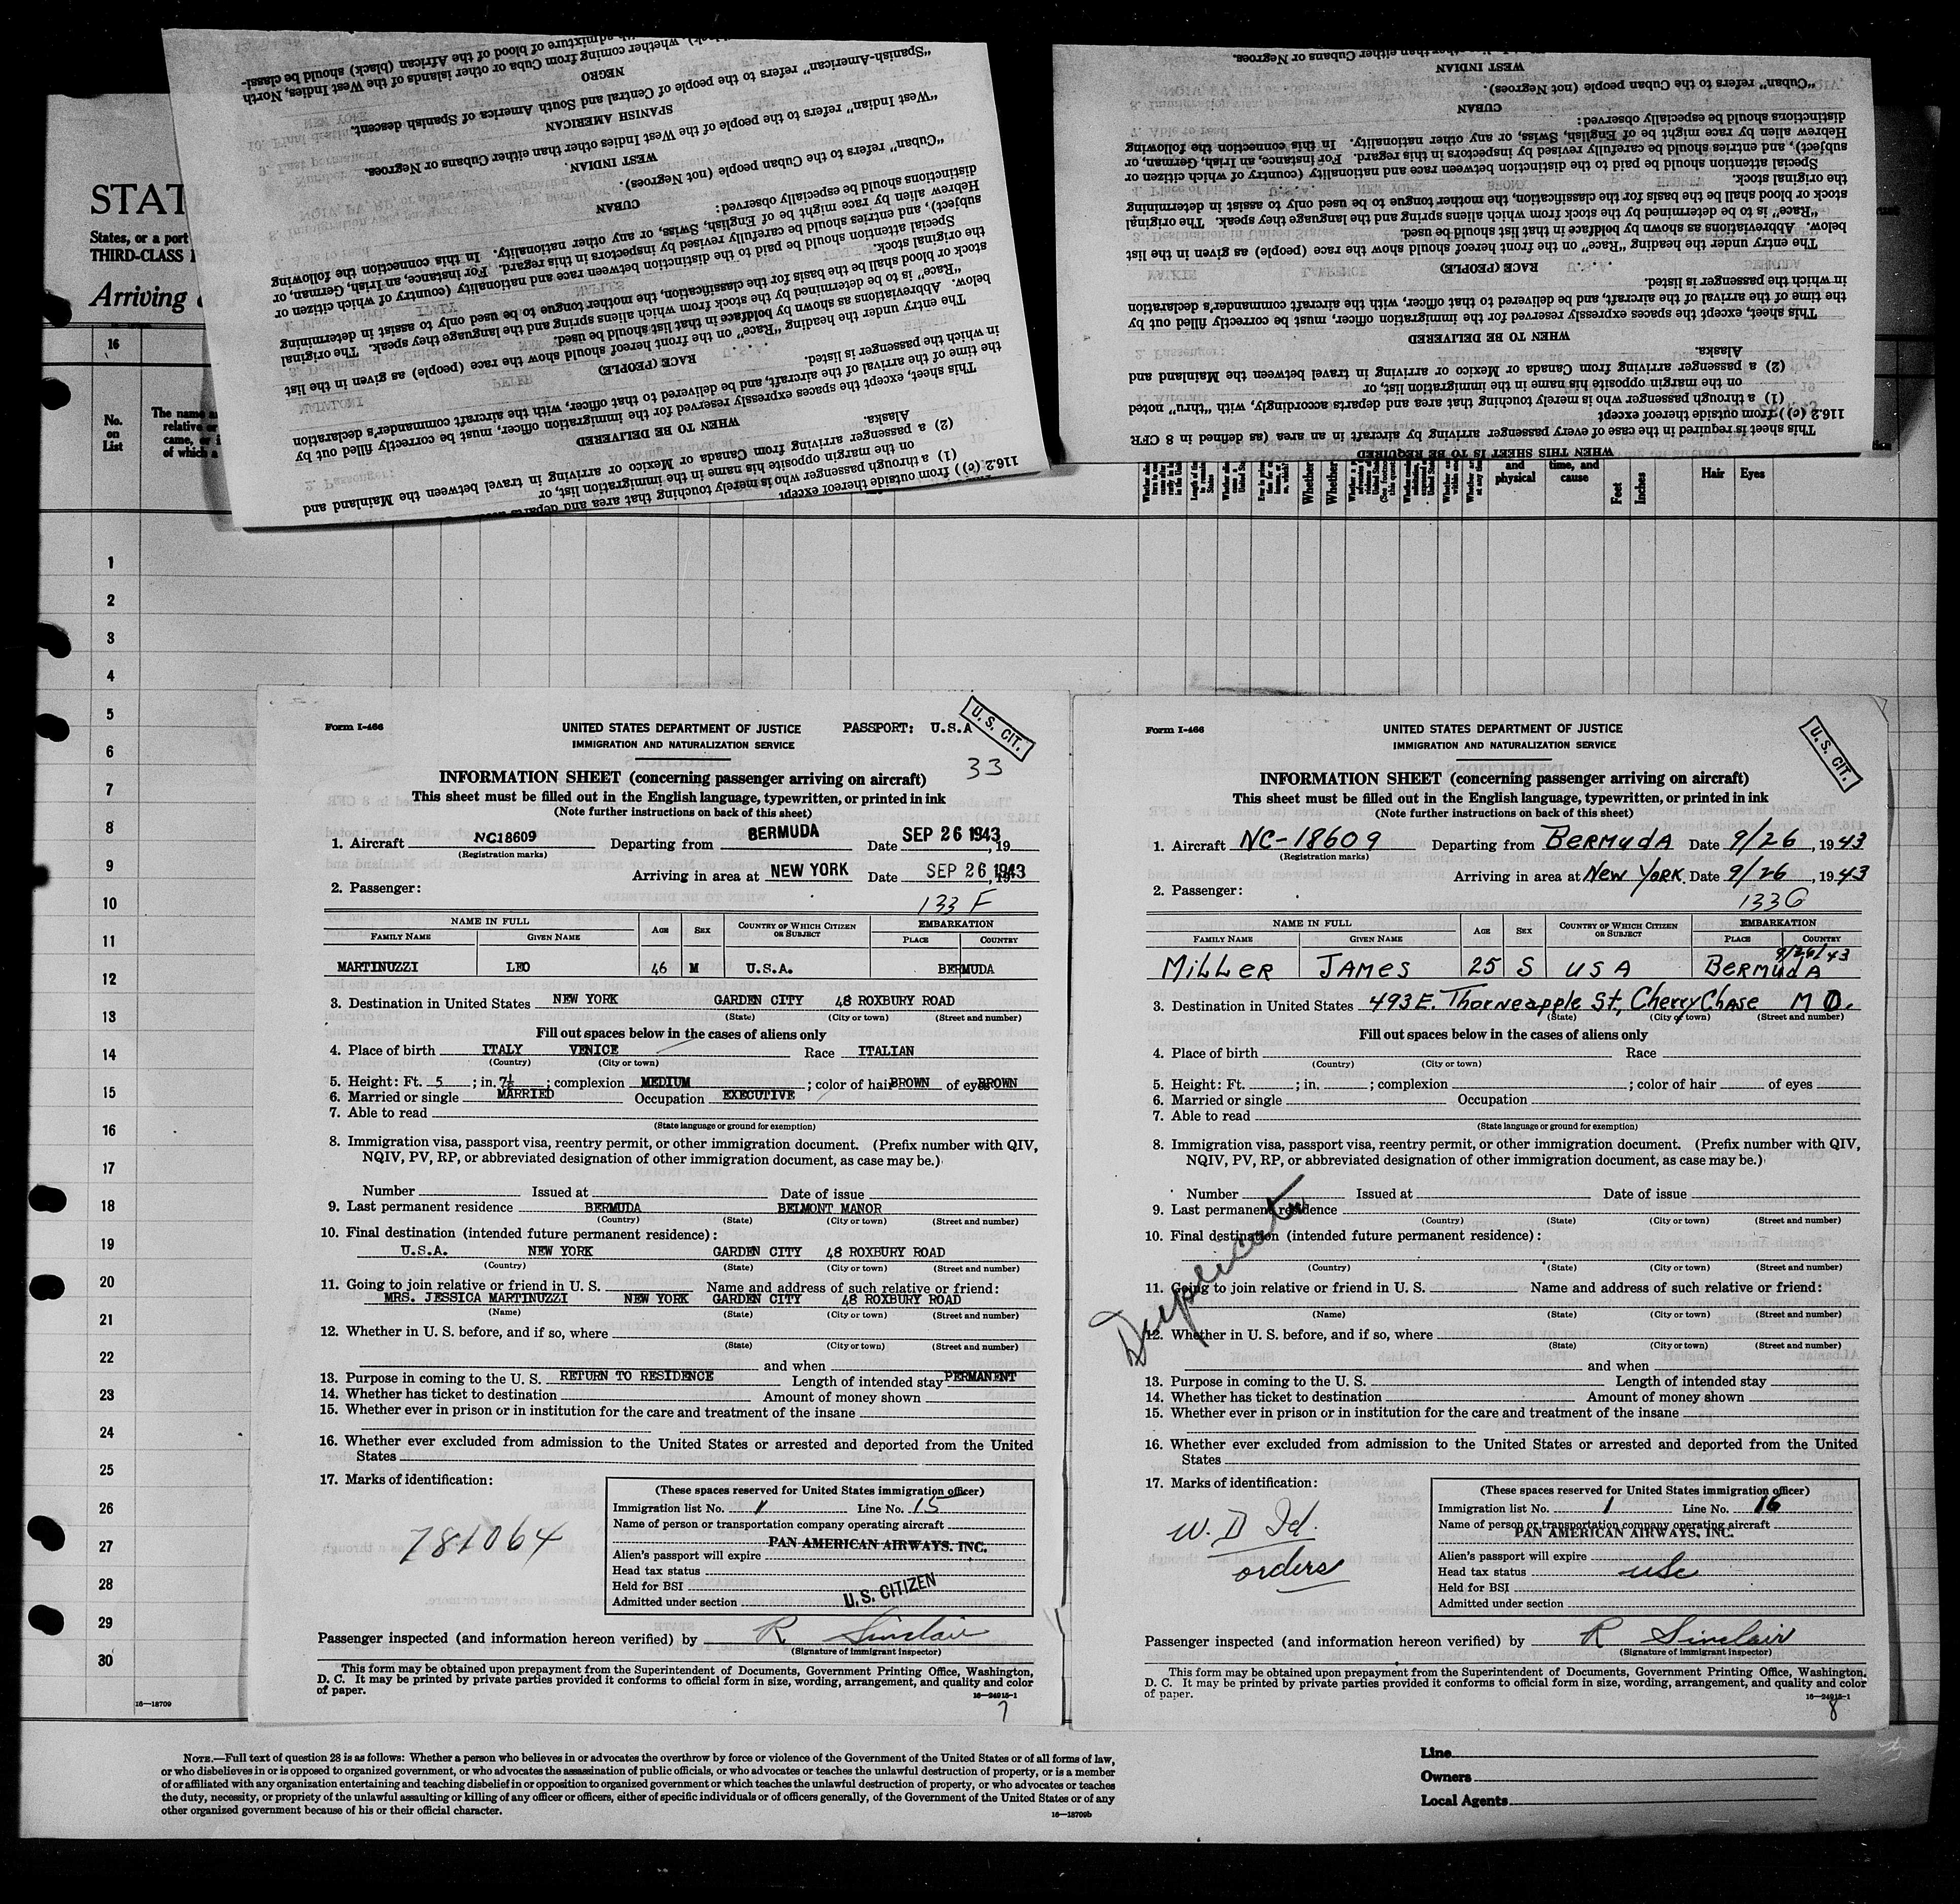 "Spanish-American" refers to the people of Central and South America of Spanish descent.
SPANISH AMERICAN
"West Indian" refers to the people of the West Indies other than either Cubans or Negroes.
WEST INDIAN
"Cuban" refers to the Cuban people (not Negroes).
CUBAN
distinctions should be especially observed:
Hebrew alien by race might be of English, Swiss, or any other nationality. In this connection the following
subject), and entries should be carefully revised by inspectors in this regard. For instance, an Irish, German, or
Special attention should be paid to the distinction between race and nationality (country of which citizen or
the original stock.
stock or blood shall be the basis for the classification, the mother tongue to be used only to assist in determining
"Race" is to be determined by the stock from which aliens spring and the language they speak. The original
below. Abbreviations as shown by boldface in that list should be used.
The entry under the heading "Race" on the front hereof should show the race (people) as given in the list
RACE (PEOPLE)
in which the passenger is listed.
the time of the arrival of the aircraft, and be delivered to that officer, with the aircraft commander's declaration
This sheet, except the spaces expressly reserved for the immigration officer, must be correctly filled out by
WHEN TO BE DELIVERED
Alaska.
(2) a passenger arriving from Canada or Mexico or arriving in travel between the Mainland and
on the margin opposite his name in the immigration list, or
(1) a through passenger who is merely touching that area and departs
116.2 (c)) from outside thereof except
WEST INDIAN
"Cuban" refers to the Cuban people (not Negroes).
CUBAN
distinctions should be especially observed:
Hebrew alien by race might be of English, Swiss, or any other nationality. In this connection the following
subject), and entries should be carefully revised by inspectors in this regard. For instance, an Irish, German, or
Special attention should be paid to the distinction between race and nationality (country of which citizen or
the original stock.
stock or blood shall be the basis for the classification, the mother tongue to be used only to assist in determining
"Race" is to be determined by the stock from which aliens spring and the language they speak. The original
below. Abbreviations as shown by boldface in that list should be used.
The entry under the heading "Race" on the front hereof should show the race (people) as given in the list
RACE (PEOPLE)
in which the passenger is listed.
the time of the arrival of the aircraft, and be delivered to that officer, with the aircraft commander's declaration
This sheet, except the spaces expressly reserved for the immigration officer, must be correctly filled out by
WHEN TO BE DELIVERED
Alaska.
(2) a passenger arriving from Canada or Mexico or arriving in travel between the Mainland and
on the margin opposite his name in the immigration list, or
(1) a through passenger who is merely touching that area and departs accordingly, with "thru" noted
116.2 (c)) from outside thereof except
This sheet is required in the case of every passenger arriving by aircraft in an area (as defined in 8 CFR
WHEN THIS SHEET IS TO BE REQUIRED
STAT
States, or a port
THIRD-CLASS
Arriving
16
No. on List
and physical
time, and cause
Feet
Inches
Hair
Eyes
1
2
3
4
5
6
7
8
9
10
11
12
13
14
15
16
17
18
19
20
21
22
23
24
25
26
27
28
29
30
16—18709
Form I-466
UNITED STATES DEPARTMENT OF JUSTICE PASSPORT: U.S.A
U. S. CIT.
IMMIGRATION AND NATURALIZATION SERVICE
33
INFORMATION SHEET (concerning passenger arriving on aircraft)
This sheet must be filled out in the English language, typewritten, or printed in ink
(Note further instructions on back of this sheet)
1. Aircraft NC18609 Departing from BERMUDA Date SEP 26 1943, 19
(Registration marks)
Arriving in area at NEW YORK Date SEP 26 1943, 19
2. Passenger:
133 F
NAME IN FULL AGE SEX COUNTRY OF WHICH CITIZEN OR SUBJECT EMBARKATION
FAMILY NAME GIVEN NAME PLACE COUNTRY
MARTINUZZI LEO 46 M U.S.A. BERMUDA
3. Destination in United States NEW YORK GARDEN CITY 48 ROXBURY ROAD
(State) (City or town) (Street and number)
Fill out spaces below in the cases of aliens only
4. Place of birth ITALY VENICE Race ITALIAN
(Country) (City or town)
5. Height: Ft. 5 ; in. 7½ ; complexion MEDIUM ; color of hair BROWN of eyes BROWN
6. Married or single MARRIED Occupation EXECUTIVE
7. Able to read
(State language or ground for exemption)
8. Immigration visa, passport visa, reentry permit, or other immigration document. (Prefix number with QIV,
NQIV, PV, RP, or abbreviated designation of other immigration document, as case may be.)
Number Issued at Date of issue
9. Last permanent residence BERMUDA BELMONT MANOR
(Country) (State) (City or town) (Street and number)
10. Final destination (intended future permanent residence):
U.S.A. NEW YORK GARDEN CITY 48 ROXBURY ROAD
(Country) (State) (City or town) (Street and number)
11. Going to join relative or friend in U. S. Name and address of such relative or friend:
MRS. JESSICA MARTINUZZI NEW YORK GARDEN CITY 48 ROXBURY ROAD
(Name) (State) (City or town) (Street and number)
12. Whether in U. S. before, and if so, where
(State) (City or town) (Street and number)
and when
13. Purpose in coming to the U. S. RETURN TO RESIDENCE Length of intended stay PERMANENT
14. Whether has ticket to destination Amount of money shown
15. Whether ever in prison or in institution for the care and treatment of the insane
16. Whether ever excluded from admission to the United States or arrested and deported from the United
States
17. Marks of identification:
781064
(These spaces reserved for United States immigration officer)
Immigration list No. 1 Line No. 15
Name of person or transportation company operating aircraft
PAN AMERICAN AIRWAYS. INC.
Alien's passport will expire
Head tax status
Held for BSI
Admitted under section
U. S. CITIZEN
Passenger inspected (and information hereon verified) by R Sinclair
(Signature of immigrant inspector)
This form may be obtained upon prepayment from the Superintendent of Documents, Government Printing Office, Washington,
D. C. It may be printed by private parties provided it conforms to official form in size, wording, arrangement, and quality and color
of paper.
16—24915-1
7
Form I-466
UNITED STATES DEPARTMENT OF JUSTICE
U. S. CIT.
IMMIGRATION AND NATURALIZATION SERVICE
INFORMATION SHEET (concerning passenger arriving on aircraft)
This sheet must be filled out in the English language, typewritten, or printed in ink
(Note further instructions on back of this sheet)
1. Aircraft NC-18609 Departing from BERMUDA Date 9/26, 1943
(Registration marks)
Arriving in area at New York. Date 9/26, 1943
2. Passenger:
133G
NAME IN FULL AGE SEX COUNTRY OF WHICH CITIZEN OR SUBJECT EMBARKATION
FAMILY NAME GIVEN NAME PLACE COUNTRY
9/26/43
MILLER JAMES 25 S USA BERMUDA
3. Destination in United States 493E. Thorneapple St., Cherry Chase MD.
(State) (City or town) (Street and number)
Fill out spaces below in the cases of aliens only
4. Place of birth Race
(Country) (City or town)
5. Height: Ft. ; in. ; complexion ; color of hair of eyes
6. Married or single Occupation
7. Able to read
(State language or ground for exemption)
8. Immigration visa, passport visa, reentry permit, or other immigration document. (Prefix number with QIV,
NQIV, PV, RP, or abbreviated designation of other immigration document, as case may be.)
Number Issued at Date of issue
9. Last permanent residence
(Country) (State) (City or town) (Street and number)
Duplicate
10. Final destination (intended future permanent residence):
(Country) (State) (City or town) (Street and number)
11. Going to join relative or friend in U. S. Name and address of such relative or friend:
(Name) (State) (City or town) (Street and number)
12. Whether in U. S. before, and if so, where
(State) (City or town) (Street and number)
and when
13. Purpose in coming to the U. S. Length of intended stay
14. Whether has ticket to destination Amount of money shown
15. Whether ever in prison or in institution for the care and treatment of the insane
16. Whether ever excluded from admission to the United States or arrested and deported from the United
States
17. Marks of identification:
W. D Id.
orders
(These spaces reserved for United States immigration officer)
Immigration list No. 1 Line No. 16
Name of person or transportation company operating aircraft
PAN AMERICAN AIRWAYS. INC.
Alien's passport will expire
Head tax status usc
Held for BSI
Admitted under section
Passenger inspected (and information hereon verified) by R Sinclair
(Signature of immigrant inspector)
This form may be obtained upon prepayment from the Superintendent of Documents, Government Printing Office, Washington,
D. C. It may be printed by private parties provided it conforms to official form in size, wording, arrangement, and quality and color
of paper.
16—24915-1
8
NOTE.—Full text of question 28 is as follows: Whether a person who believes in or advocates the overthrow by force or violence of the Government of the United States or of all forms of law,
or who disbelieves in or is opposed to organized government, or who advocates the assassination of public officials, or who advocates or teaches the unlawful destruction of property, or is a member
of or affiliated with any organization entertaining and teaching disbelief in or opposition to organized government or which teaches the unlawful destruction of property, or who advocates or teaches
the duty, necessity, or propriety of the unlawful assaulting or killing of any officer or officers, either of specific individuals or of officers generally, of the Government of the United States or of any
other organized government because of his or their official character.
16—18709b
Line
Owners
Local Agents